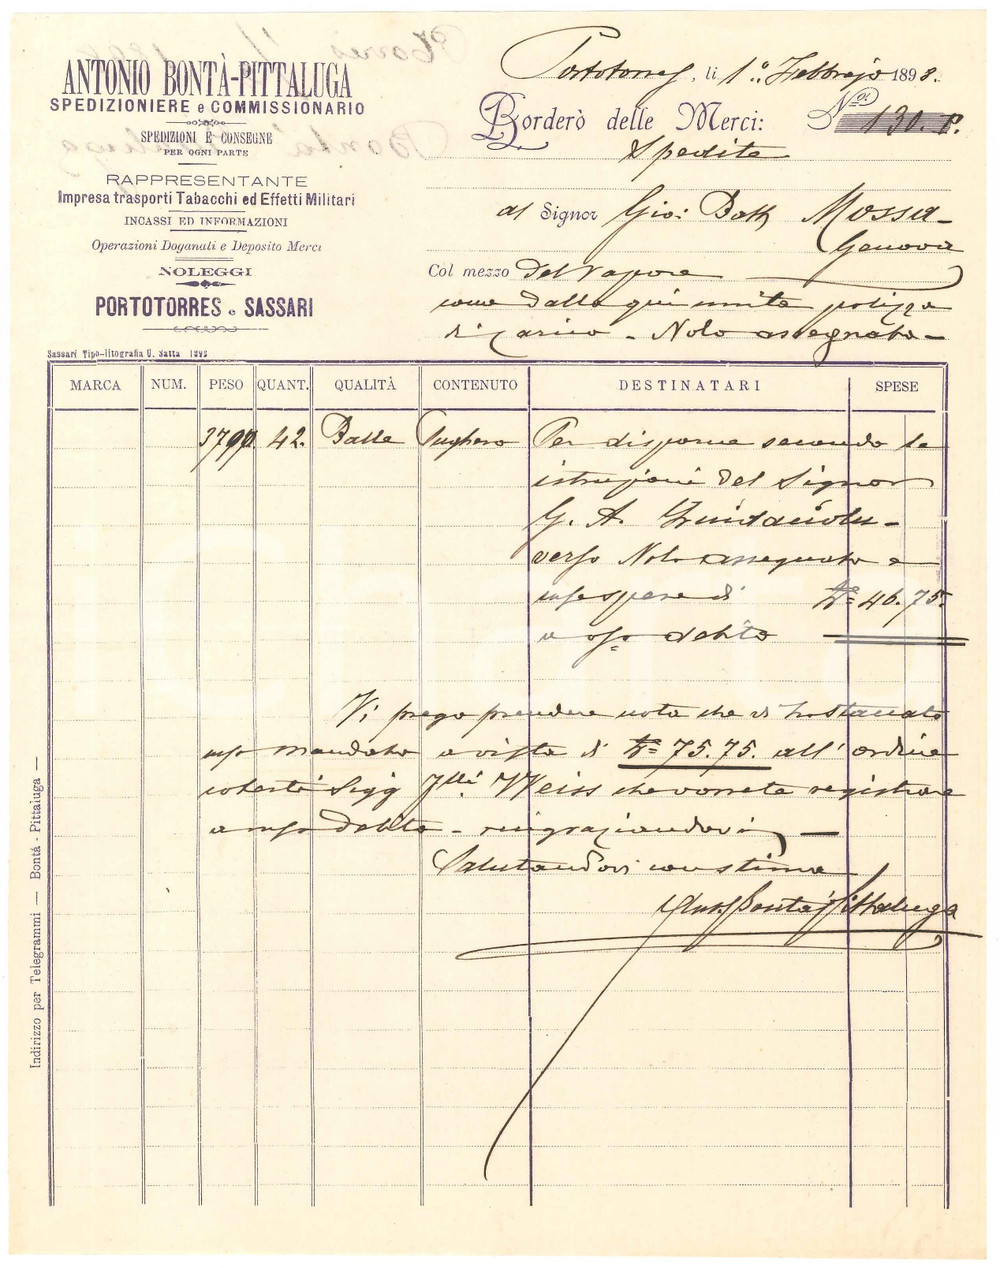 ANTONIO BONTÀ-PITTALUGA
SPEDIZIONIERE e COMMISSIONARIO
SPEDIZIONI E CONSEGNE
PER OGNI PARTE
RAPPRESENTANTE
Impresa trasporti Tabacchi ed Effetti Militari
INCASSI ED INFORMAZIONI
Operazioni Doganali e Deposito Merci
NOLEGGI
PORTOTORRES e SASSARI
Sassari Tipo-litografia U. Satta 1892
Portotorres, li 1° Febbrajo 1898.
Borderò delle Merci: N° 130. P.
Spedite
al Signor Gio: Batta Mossa
Genova
Còl mezzo del vapore
come dalla qui unita polizza
di carico - Nolo assegnato -
MARCA NUM. PESO QUANT. QUALITÀ CONTENUTO DESTINATARI SPESE
42. Balle Sughero Per disporne secondo le
istruzioni del Signor
G. A.
verso Nolo assegnato e
spese di £ 46.75.
debito
Vi prego prendere nota che vi ho staccato
mandato a vista di £ 75.75. all'ordine
Sigg F.lli Weiss che vorrete registrare
a debito - ringraziandovi
Salutandovi con stima
Bontà Pittaluga
Indirizzo per Telegrammi — Bontà - Pittaluga —